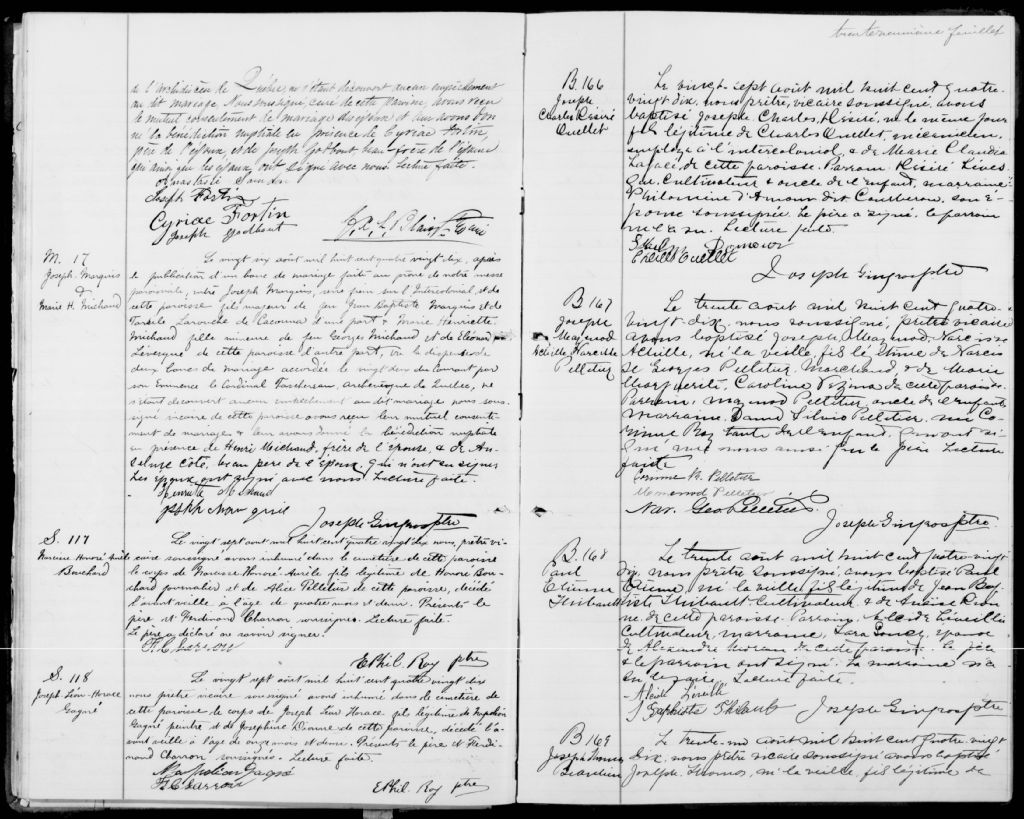 de l'archidiocèse de Québec, ne s'étant découvert aucun empêchement
au dit mariage, Nous soussigné, curé de cette paroisse, avons reçu
le mutuel consentement de mariage des époux et leur avons don
né la bénédiction nuptiale en présence de Cyriac Fortin
père de l'époux, et de Joseph Godbout, beau-frère de l'épouse
qui ainsi que les époux, ont signé avec nous. Lecture faite.
Anastasie
Joseph Fortin
Cyriac Fortin
Joseph Godbout
M. 17
Joseph Marquis
&
Marie H. Michaud
Le vingt six août mil huit cent quatre vingt dix, après
la publication d'un banc de mariage faite au prône de notre messe
paroissiale, entre Joseph Marquis, serre frein sur l'Intercolonial, et de
cette paroisse fils majeur de feu Jean Baptiste Marquis et de
Tarsile Laroche de Cacouna d'une part & Marie Henriette
Michaud fille mineure de feu Georges Michaud et de Eléonore
Lévesque de cette paroisse d'autre part, vu la dispense de
deux bancs de mariage accordée le vingt deux du courant par
son Eminence le Cardinal Taschereau, archevêque de Québec, ne
s'étant découvert aucun empêchement au dit mariage nous sous-
signé vicaire de cette paroisse avons reçu leur mutuel consente-
ment de mariage & leur avons donné la bénédiction nuptiale
en présence de Henri Michaud, frère de l'épouse, & de An-
selme Coté, beau père de l'époux, qui n'ont su signer.
Les époux ont signé avec nous Lecture faite.
Henriette Michaud
Joseph Marquis
Joseph Gingras ptre
S. 117
Narcisse Honoré Aurèle
Bouchard
Le vingt sept août mil huit cent quatre vingt dix nous, prêtre vi-
caire soussigné avons inhumé dans le cimetière de cette paroisse
le corps de Narcisse Honoré Aurèle fils légitime de Honoré Bou-
chard journalier et de Alice Pelletier de cette paroisse, décédé
l'avant veille à l'âge de quatre mois et demi. Présents le
père et Ferdinand Charron soussignés. Lecture faite.
Le père a déclaré ne savoir signer.
F. Charron
E Phil. Roy ptre
S. 118
Joseph Léon-Horace
Gagné
Le vingt sept août mil huit cent quatre vingt dix
nous prêtre vicaire soussigné avons inhumé dans le cimetière de
cette paroisse le corps de Joseph Léon Horace fils légitime de Napoléon
Gagné peintre et de Joséphine Dionne de cette paroisse, décédé l'a-
vant veille à l'âge de onze mois et demi. Présents le père et Ferdi-
nand Charron soussignés. Lecture faite.
Napoléon Gagné
F. Charron
E Phil. Roy ptre
trente neuvième feuillet
B. 166
Joseph
Charles Désiré
Ouellet
Le vingt-sept août mil huit cent quatre-
vingt dix, nous prêtre, vicaire soussigné, avons
baptisé Joseph Charles, Désiré, né le même jour
fils légitime de Charles Ouellet, mécanicien,
employé à l'intercolonial, & de Marie Claudia
de cette paroisse. Parrain Désiré Léves-
que, Cultivateur & oncle de l'enfant, marraine
Philomène D'Amour dit Courberon, son é-
pouse soussignée. Le père a signé. le parrain
ne l'a su. Lecture faite.
Charles Ouellet
Joseph Gingras ptre
B. 167
Joseph
Mazenod
Achille Narcisse
Pelletier
Le trente août mil huit cent quatre-
vingt-dix, nous soussigné, prêtre vicaire
avons baptisé Joseph, Mazenod, Narcisse
Achille, né la veille, fils légitime de Narcis
se Georges Pelletier, Marchand, & de Marie
Marguerite, Caroline Vézina de cette paroisse.
Parrain, Mazenod Pelletier, oncle de l'enfant
marraine Dame Silvio Pelletier, née Co
rinne Roy tante de l'enfant, qui ont si-
gné avec nous ainsi que le père Lecture
faite
Corinne R. Pelletier
Mazenod Pelletier
Nar. Geo Pelletier
Joseph Gingras ptre.
B. 168
Paul
Etienne
Thibault
Le trente août mil huit cent quatre vingt
dix, nous prêtre soussigné, avons baptisé Paul
Etienne, né la veille fils légitime de Jean Bap-
tiste Thibault Cultivateur, & de
de cette paroisse. Parrain, Alcide Léveillé
Cultivateur, marraine, épouse
de Alexandre de cette paroisse. le père
& le parrain ont signé. La marraine n'a
su le faire. Lecture faite.
Alcide Léveillé
J Baptiste Thibault
Joseph Gingras ptre
B 169
Joseph Thomas
Beaulieu
Le trente-un août mil huit cent quatre vingt
dix, nous prêtre vicaire soussigné avons baptisé
Joseph, Thomas, né la veille, fils légitime de